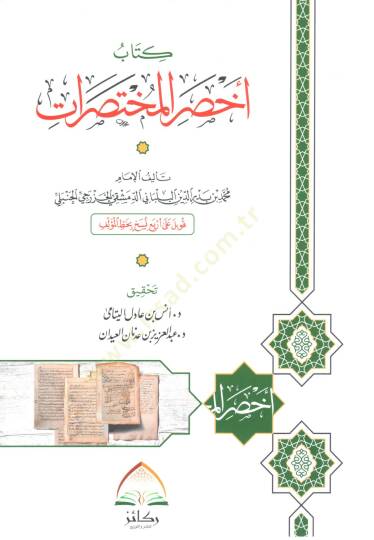 كتاب
أخصر المختصرات
تأليف الإمام
محمد بن بدر الدين البلباني الدمشقي الخزرجي الحنبلي
قوبل على أربع نسخ بخط المؤلف
تحقيق
د. أنس بن عادل اليتامى
د. عبد العزيز بن عدنان العيدان
أخصر الم
ركائز
للنشر والتوزيع